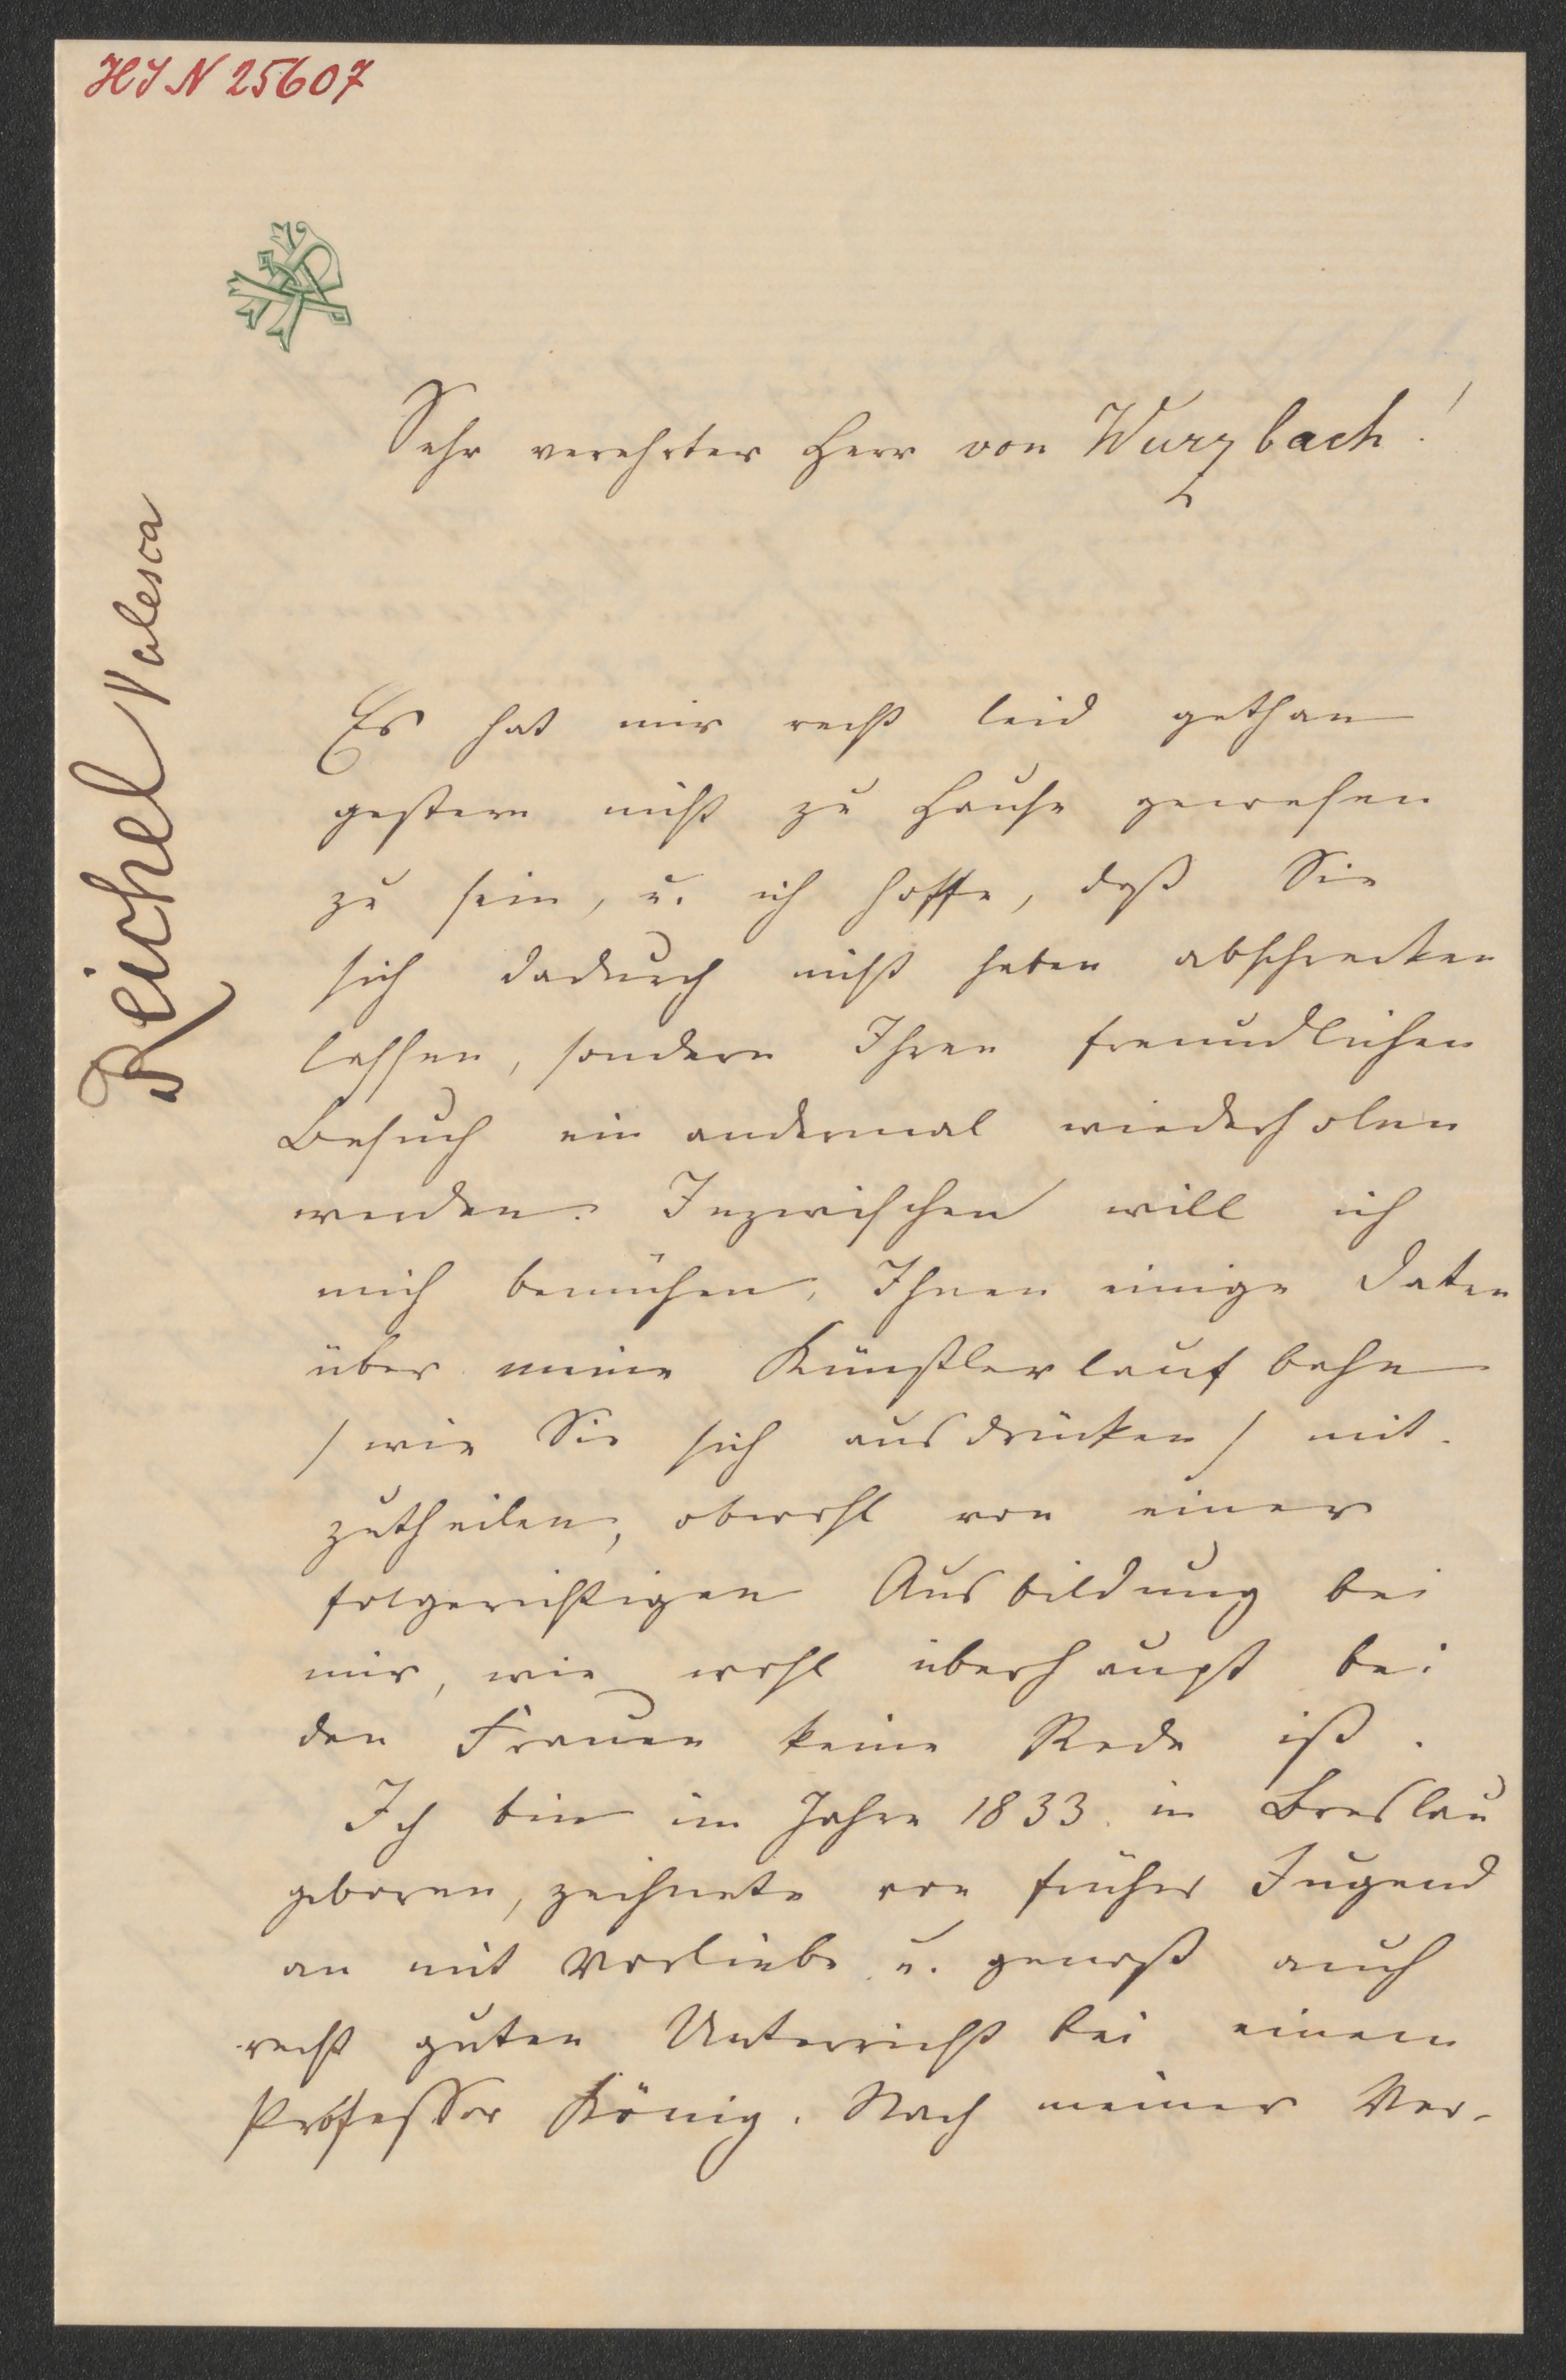 HIN 25607
Reichel Valesca
Sehr verehrter Herr von Wurzbach!
Es hat mir recht leid gethan
gestern nicht zu Hause gewesen
zu sein, u. ich hoffe, daß Sie
sich dadurch nicht haben abschrecken
lassen, sondern Ihren freundlichen
Besuch ein andermal wiederholen
werden. Inzwischen will ich
mich bemühen, Ihnen einige Daten
über meine Künstlerlaufbahn
/ wie Sie sich ausdrücken / mit-
zutheilen, obwohl von einer
folgerichtigen Ausbildung bei
mir, wie wohl überhaupt bei
den Frauen keine Rede ist.
Ich bin im Jahre 1833 in Breslau
geboren, zeichnete von früher Jugend
an mit Vorliebe u. genoß auch
recht guten Unterricht bei einem
Professor König. Nach meiner Ver-